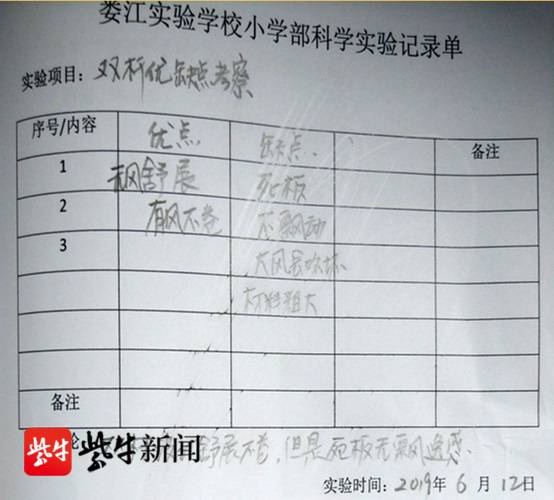 娄江实验学校小学部科学实验记录单
实验项目：双杆优缺点考察
序号/内容 优点 缺点 备注
1 无风舒展 死板
2 有风不卷 不飘动
3 大风会吹坏
材料粗大
备注
论 舒展不卷，但是死板无飘逸感.
紫牛 紫牛新闻
实验时间：2019年6月12日